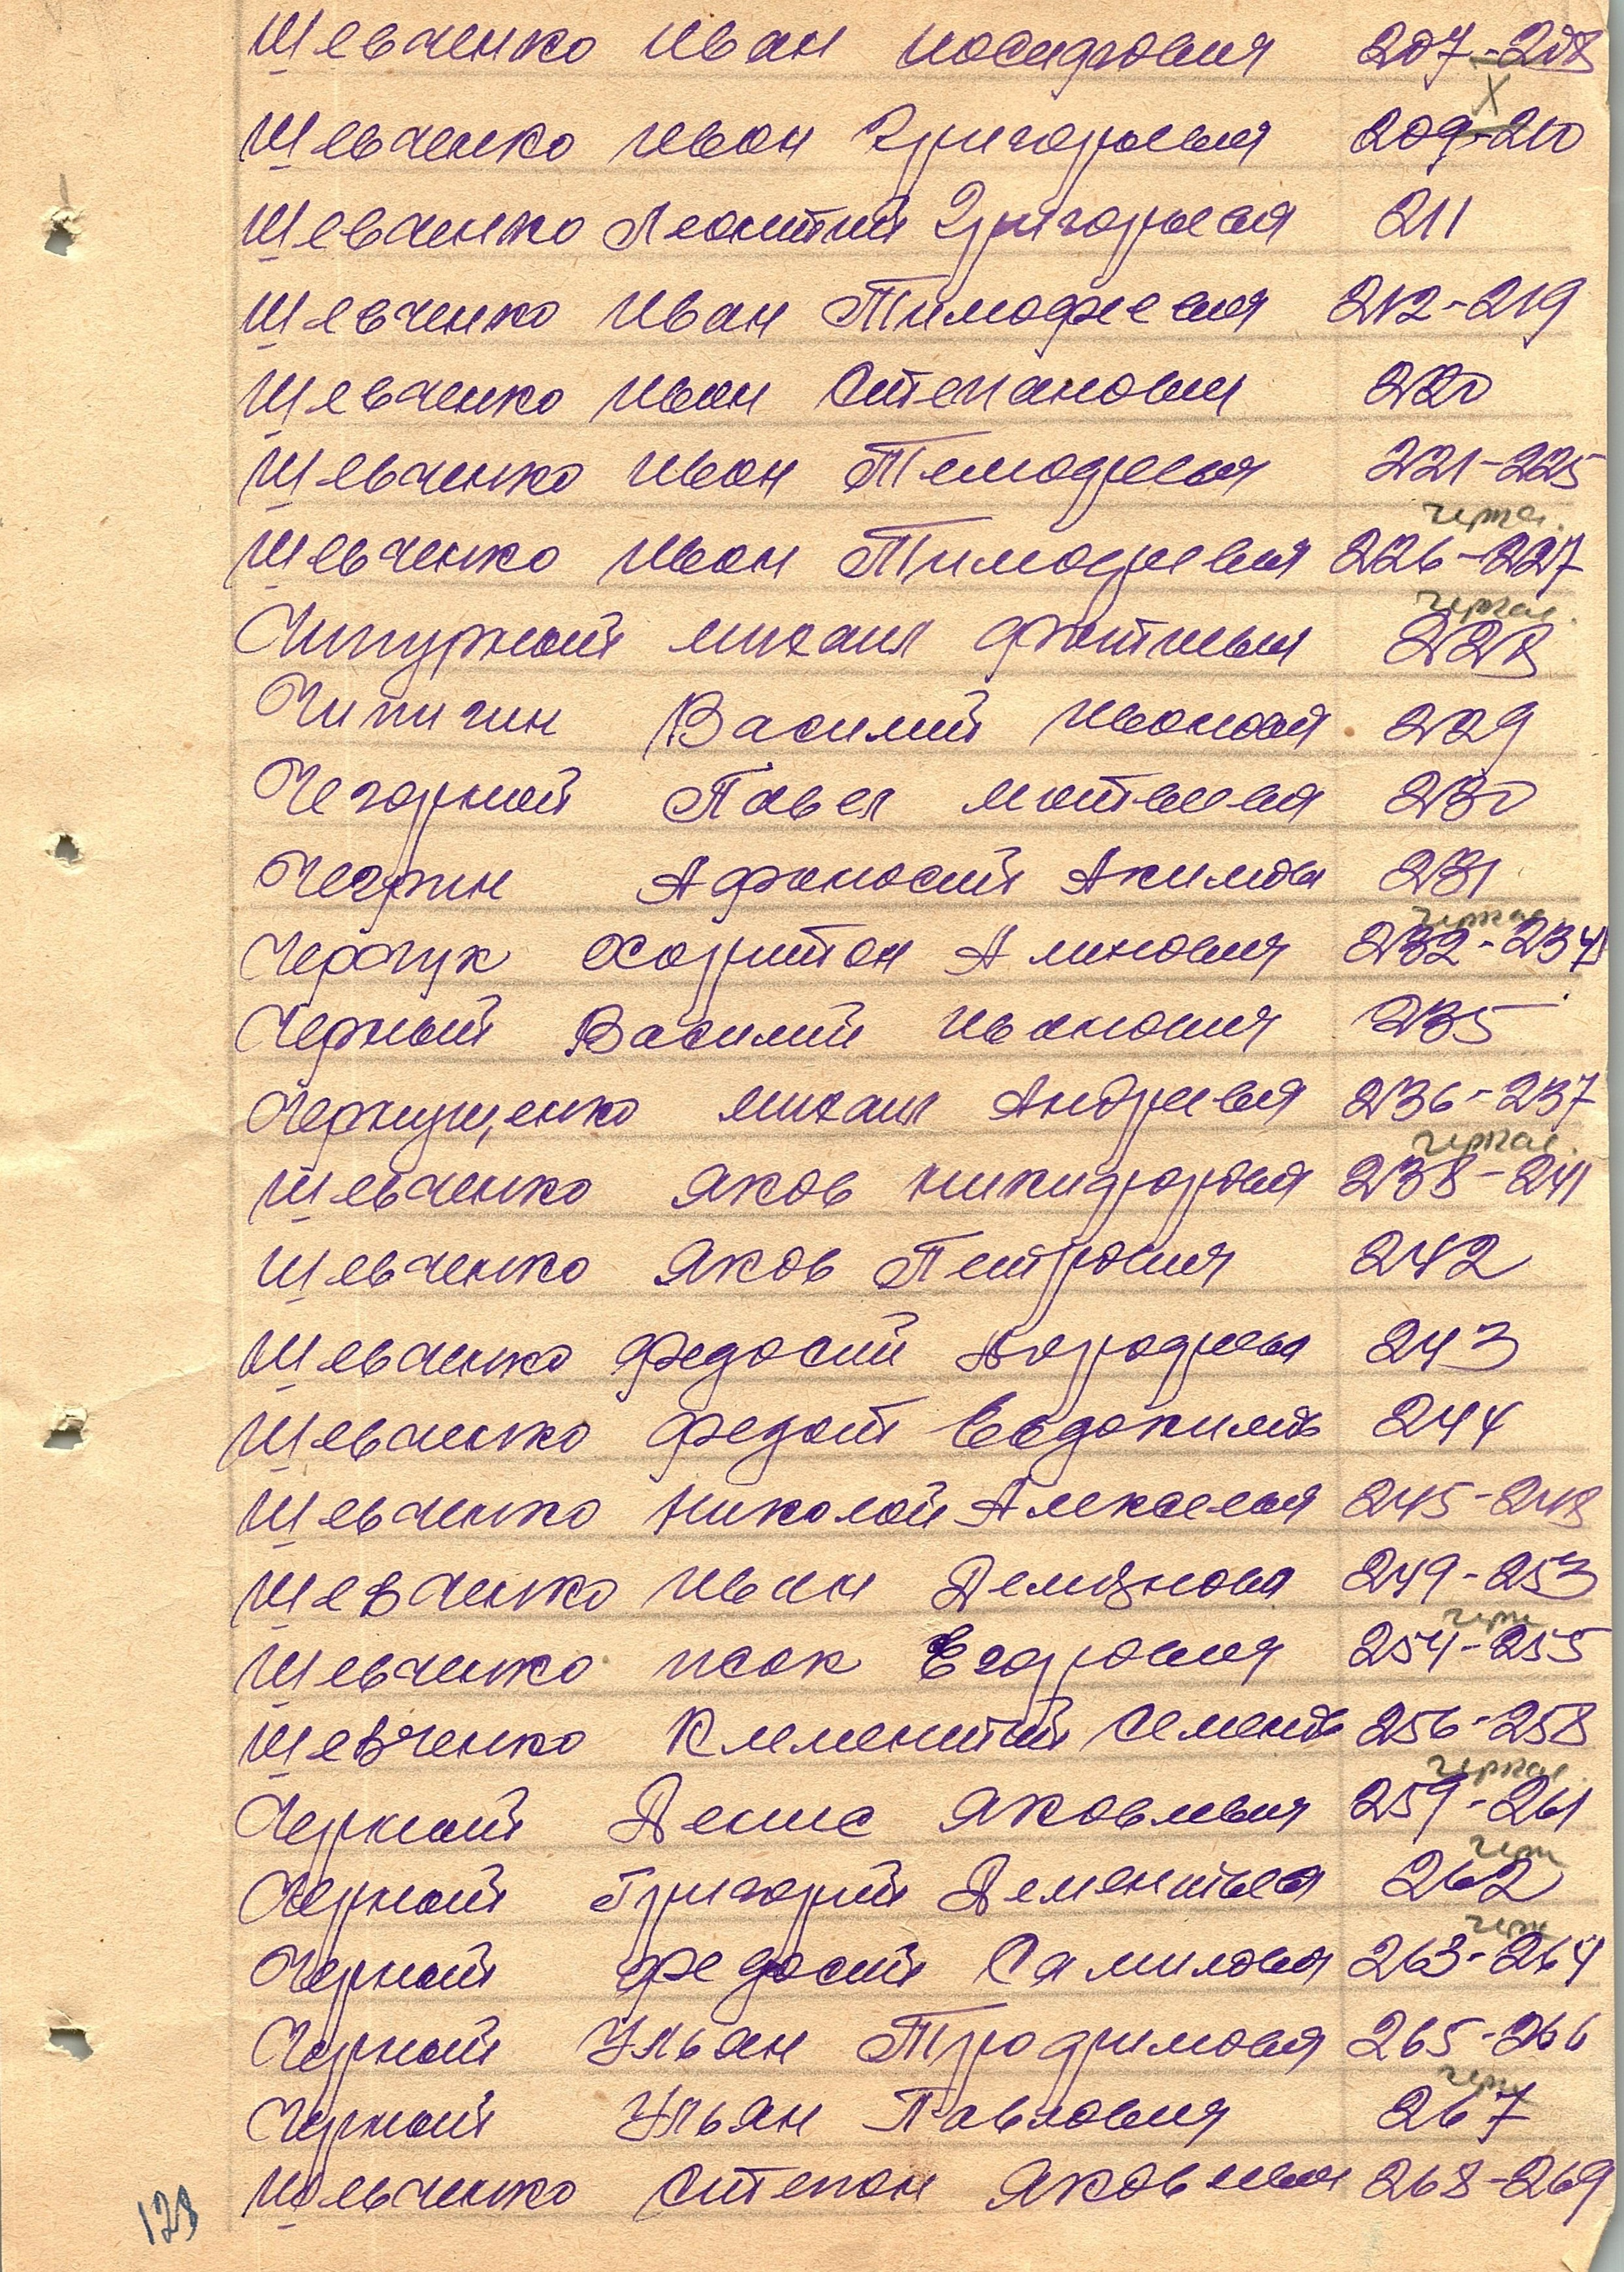 Шевченко Иван Иосифович 207-208
X
Шевченко Иван Григорьевич 209-210
Шевченко Леонтий Григорьевич 211
Шевченко Иван Тимофеевич 212-219
Шевченко Иван Степанович 220
Шевченко Иван Тимофеевич 221-225
Шевченко Иван Тимофеевич 226-227
черкас.
Чипурной Михаил 228
Чипигин Василий Иванович 229
Чегорной Павел Матвеевич 230
Чегрин Афаносий Акимов 231
черкас
Харитон 232-234
Черный Василий Иванович 235
Чернущенко Михаил Андреевич 236-237
черкас.
Шевченко Яков Никифорович 238-241
Шевченко Яков Петрович 242
Шевченко Федосий Дорофеев 243
Шевченко Федот Евдокимов 244
Шевченко Николай Алексеевич 245-248
Шевченко Иван Демьянович 249-253
черк
Шевченко Исак Егорович 254-255
Шевченко Клементий Семенов 256-258
черкас.
Черной Денис Яковлевич 259-261
черк
Черной Григорий Дементьев 262
черк
Черной Федосий Самилович 263-264
Черной Ульян Трофимович 265-266
черк
Черной Ульян Павлович 267
Шевченко Степан Яковлевич 268-269
128